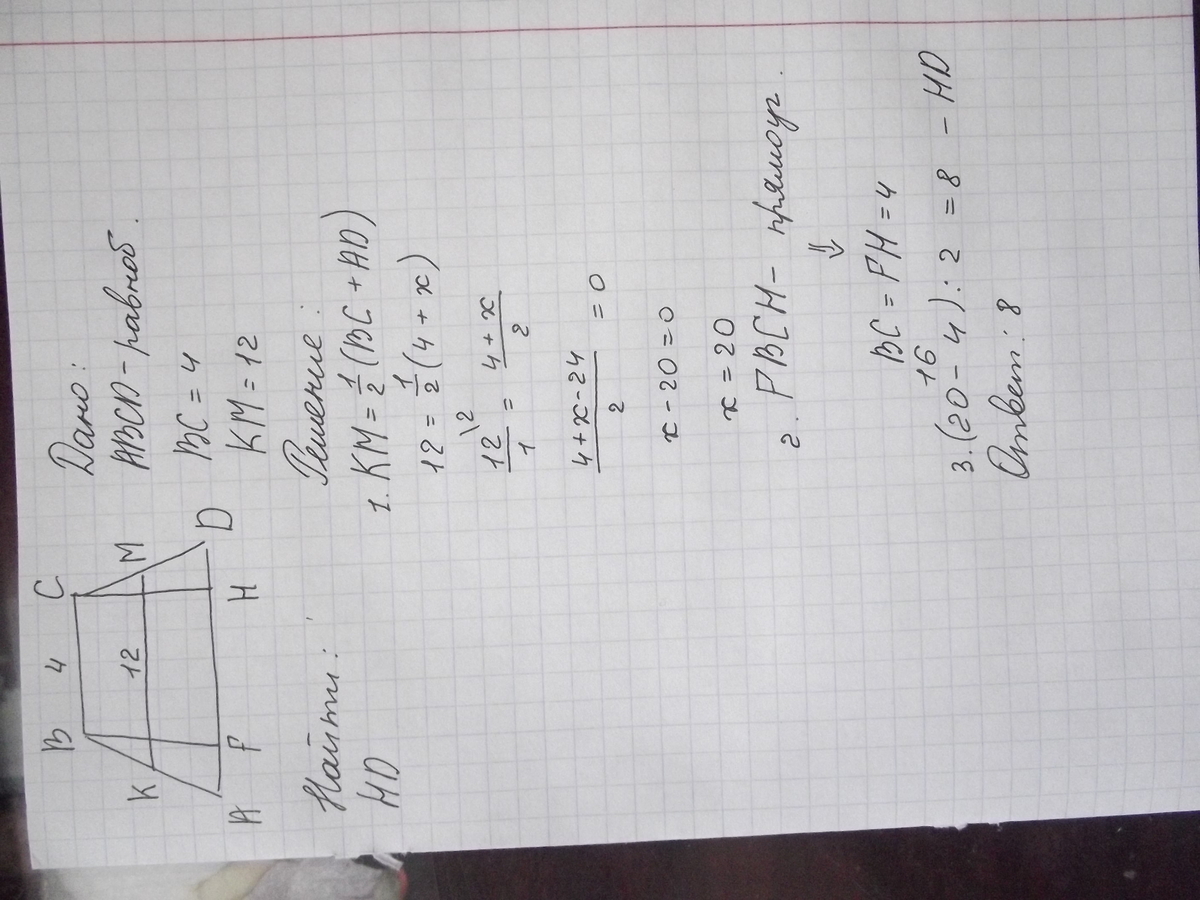 B 4 C
K 12 M
A F H D
Найти:
HD
Дано:
ABCD - равноб.
BC = 4
KM = 12
Решение:
1. KM = 1/2 (BC + AD)
12 = 1/2 (4 + x)
12\2/1 = 4 + x/2
4 + x - 24/2 = 0
x - 20 = 0
x = 20
2. FBCH - прямоуг.
⇓
BC = FH = 4
16
3. (20 - 4) : 2 = 8 - HD
Ответ: 8